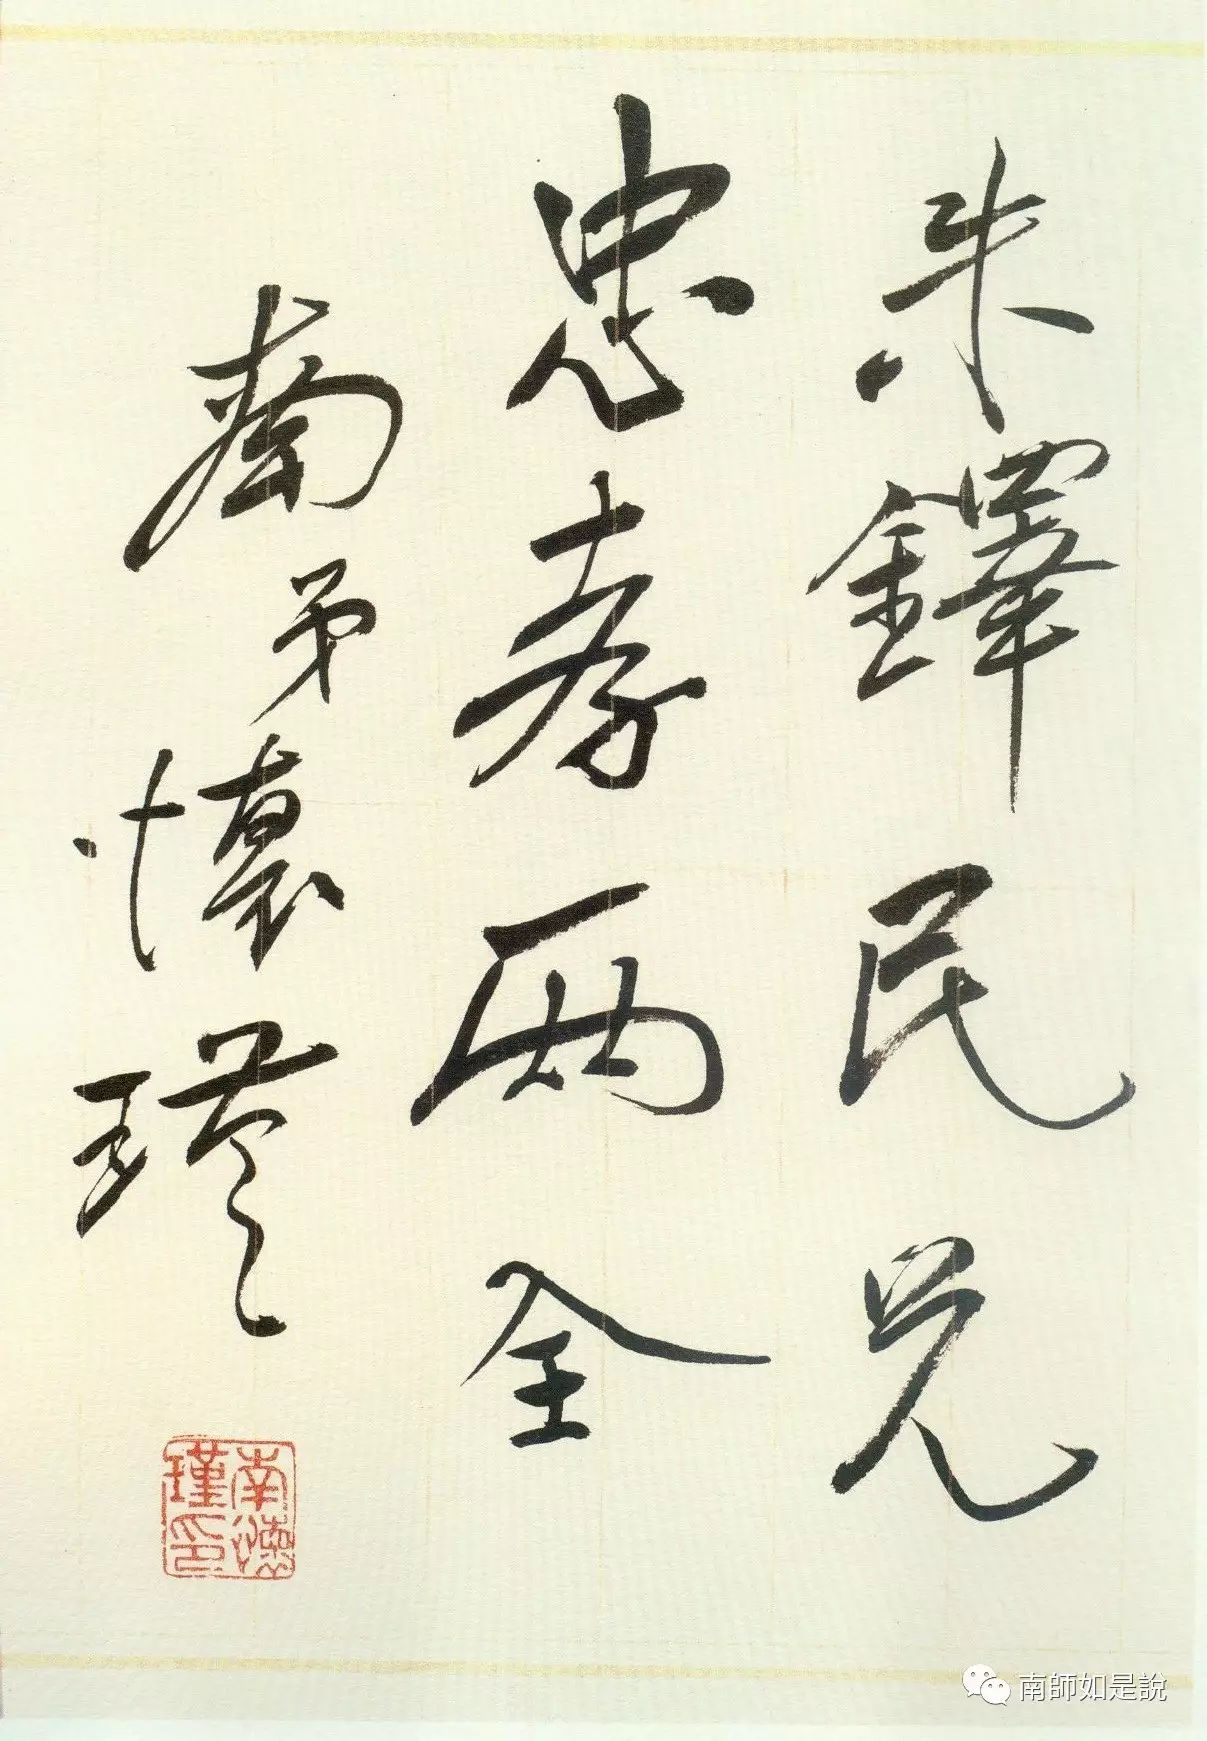 朱鐸民兄
忠孝兩全
南弟懷瑾
南懷
瑾印
南師如是說